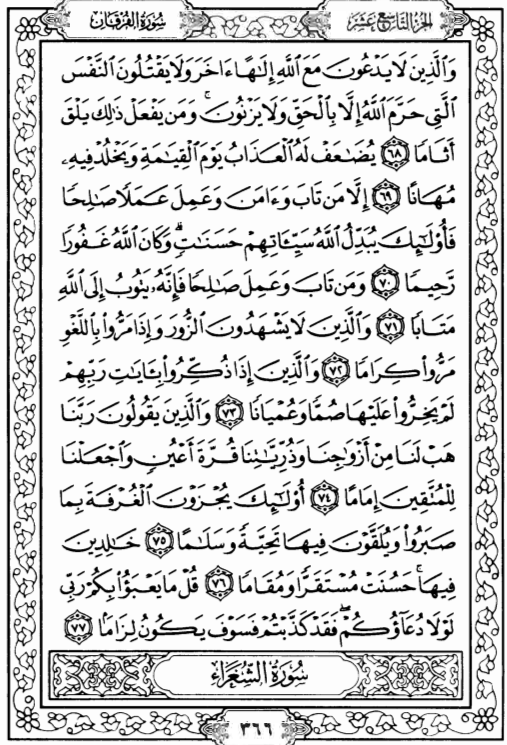 الجزء التاسع عشر
سورة الفرقان
وَالَّذِينَ لَا يَدْعُونَ مَعَ اللَّهِ إِلَٰهًا ءَاخَرَ وَلَا يَقْتُلُونَ النَّفْسَ
الَّتِي حَرَّمَ اللَّهُ إِلَّا بِالْحَقِّ وَلَا يَزْنُونَ ۚ وَمَن يَفْعَلْ ذَٰلِكَ يَلْقَ
أَثَامًا ٦٨ يُضَٰعَفْ لَهُ الْعَذَابُ يَوْمَ الْقِيَٰمَةِ وَيَخْلُدْ فِيهِۦ
مُهَانًا ٦٩ إِلَّا مَن تَابَ وَءَامَنَ وَعَمِلَ عَمَلًا صَٰلِحًا
فَأُو۟لَٰٓئِكَ يُبَدِّلُ اللَّهُ سَيِّـَٔاتِهِمْ حَسَنَٰتٍ ۗ وَكَانَ اللَّهُ غَفُورًا
رَّحِيمًا ٧٠ وَمَن تَابَ وَعَمِلَ صَٰلِحًا فَإِنَّهُۥ يَتُوبُ إِلَى اللَّهِ
مَتَابًا ٧١ وَالَّذِينَ لَا يَشْهَدُونَ الزُّورَ وَإِذَا مَرُّوا۟ بِاللَّغْوِ
مَرُّوا۟ كِرَامًا ٧٢ وَالَّذِينَ إِذَا ذُكِّرُوا۟ بِـَٔايَٰتِ رَبِّهِمْ
لَمْ يَخِرُّوا۟ عَلَيْهَا صُمًّا وَعُمْيَانًا ٧٣ وَالَّذِينَ يَقُولُونَ رَبَّنَا
هَبْ لَنَا مِنْ أَزْوَٰجِنَا وَذُرِّيَّٰتِنَا قُرَّةَ أَعْيُنٍ وَاجْعَلْنَا
لِلْمُتَّقِينَ إِمَامًا ٧٤ أُو۟لَٰٓئِكَ يُجْزَوْنَ الْغُرْفَةَ بِمَا
صَبَرُوا۟ وَيُلَقَّوْنَ فِيهَا تَحِيَّةً وَسَلَٰمًا ٧٥ خَٰلِدِينَ
فِيهَا ۚ حَسُنَتْ مُسْتَقَرًّا وَمُقَامًا ٧٦ قُلْ مَا يَعْبَؤُا۟ بِكُمْ رَبِّي
لَوْلَا دُعَآؤُكُمْ ۖ فَقَدْ كَذَّبْتُمْ فَسَوْفَ يَكُونُ لِزَامًۢا ٧٧
سُورَةُ الشُّعَرَاءِ
٣٦٦